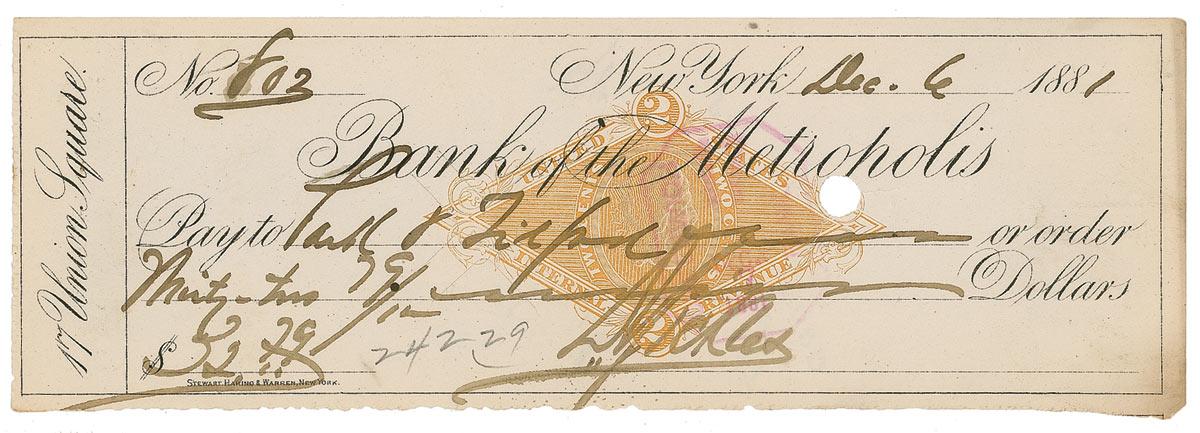 17 Union Square.
No. 802 New York Dec. 6 1881
Bank of the Metropolis
Pay to Park & Tilford or order
Thirty-two 79/100 Dollars
$ 32.79
24229
D Sickles
UNITED STATES
INTERNAL REVENUE
TWO CENTS
2
2
STEWART, HARING & WARREN, NEW YORK.